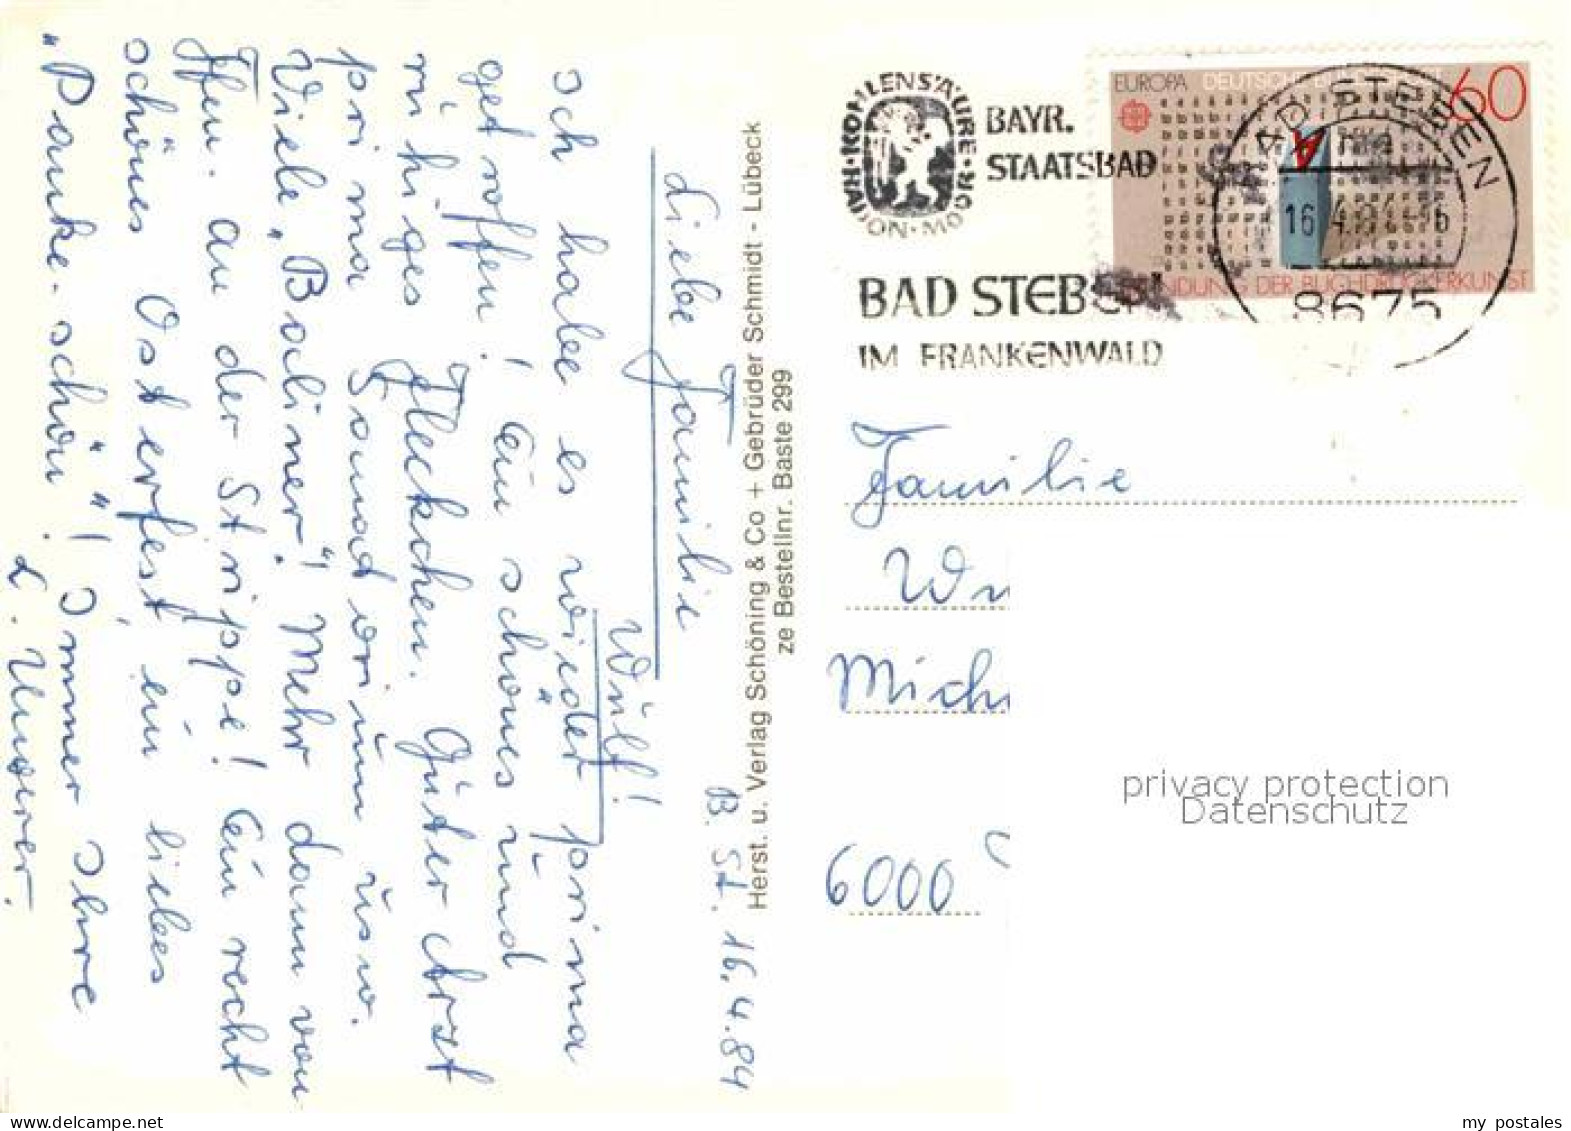 B. St. 16.4.84
Liebe Familie
Wülf!
Ich habe es wieder prima
getroffen! Ein schönes und
ruhiges Fleckchen. Guter Arzt
prima Sanatorium usw.
Viele „Berliner“! Mehr dann von
Ffm. an der Strippe! Ein recht
schönes Osterfest, ein liebes
„Danke-schön“! Immer Ihre
L.
Herst. u. Verlag Schöning & Co + Gebrüder Schmidt - Lübeck
ze Bestellnr. Baste 299
KOHLENSÄURE · MOOR
BAYR.
STAATSBAD
BAD STEBEN
IM FRANKENWALD
EUROPA DEUTSCHE BUNDESPOST 60
ERFINDUNG DER BUCHDRUCKERKUNST
BAD STEBEN
16.4.84
8675
Familie
Wu
Mich
6000
privacy protection
Datenschutz
my_postales